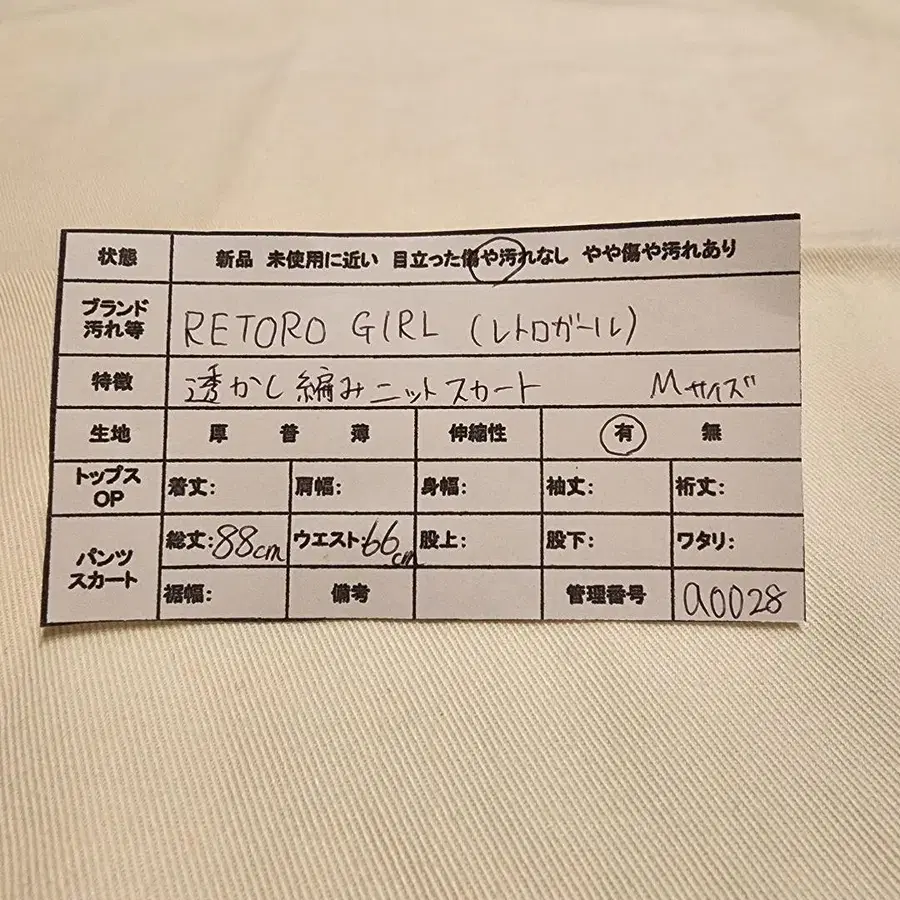 状態 新品 未使用に近い 目立った傷や汚れなし やや傷や汚れあり
ブランド
汚れ等
RETORO GIRL (レトロガール)
特徴 透かし編みニットスカート Mサイズ
生地 厚 普 薄 伸縮性 有 無
トップス
OP
着丈: 肩幅: 身幅: 袖丈: 裄丈:
パンツ
スカート
総丈:88cm ウエスト:66cm 股上: 股下: ワタリ:
裾幅: 備考 管理番号 a0028